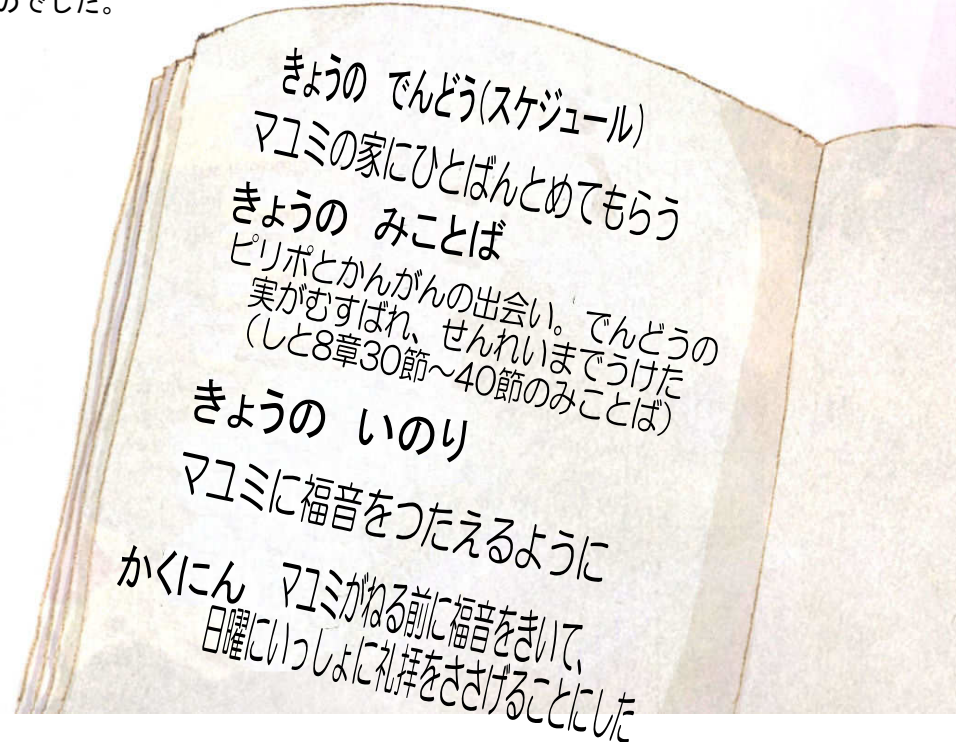 のでした。
きょうの でんどう(スケジュール)
マユミの家にひとばんとめてもらう
きょうの みことば
ピリポとかんがんの出会い。でんどうの
実がむすばれ、せんれいまでうけた
(しと8章30節～40節のみことば)
きょうの いのり
マユミに福音をつたえるように
かくにん マユミがねる前に福音をきいて、
日曜にいっしょに礼拝をささげることにした